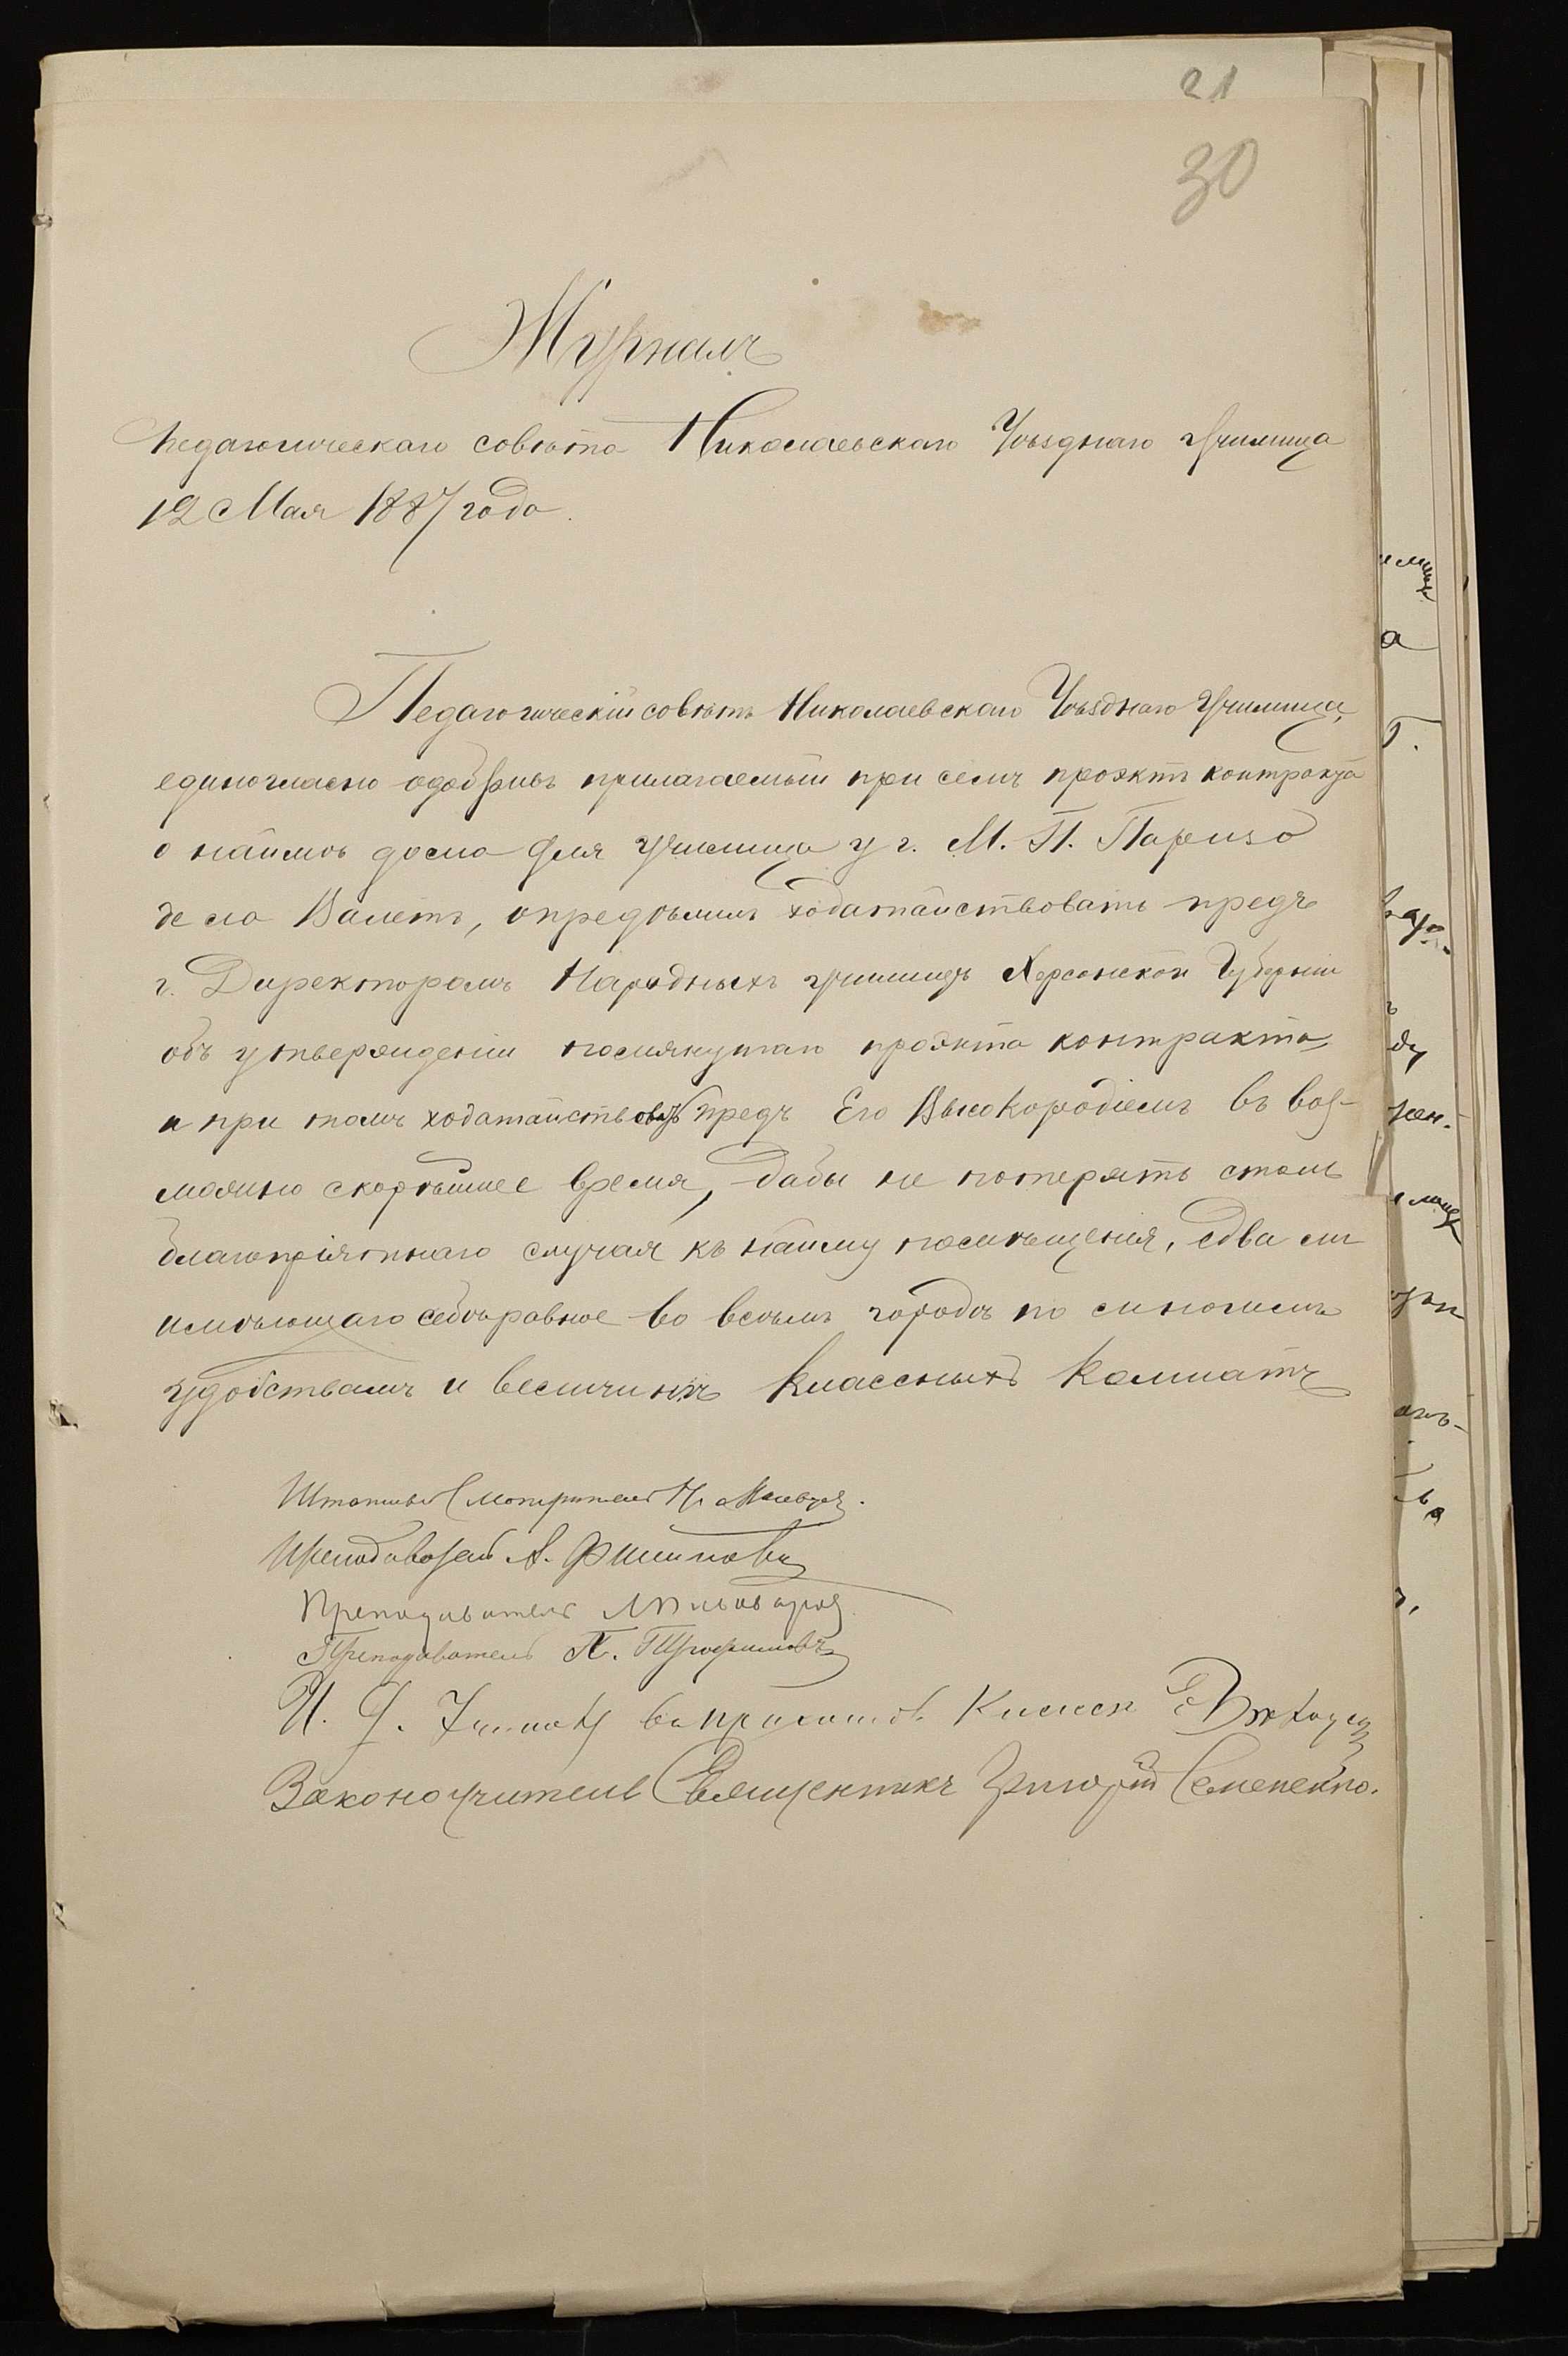 21
30
Журналъ
педагогическаго совѣта Николаевскаго Уѣзднаго Училища
12 Мая 1887 года.
Педагогическій совѣтъ Николаевскаго Уѣзднаго Училища,
единогласно одобривъ прилагаемый при семъ проэктъ контракта
о наймѣ дома для училища у г. М. П. Паризо
де ла Валетъ, опредѣлилъ ходатайствовать предъ
г. Директоромъ Народныхъ училищъ Херсонской Губерніи
объ утвержденіи помянутаго проэкта контракта,
и при томъ ходатайствовать предъ Его Высокородіемъ въ воз-
можно скорѣйшее время, дабы не потерять столь
благопріятнаго случая къ найму помѣщенія, едва ли
имѣющаго себѣ равное во всемъ городѣ по многимъ
удобствамъ и величинѣ классныхъ комнатъ
Штатный Смотритель Н.
Преподаватель А. Филиповъ
Преподаватель
Преподаватель П. Трофимовъ
И. Д.
Законоучитель Священникъ Григорій